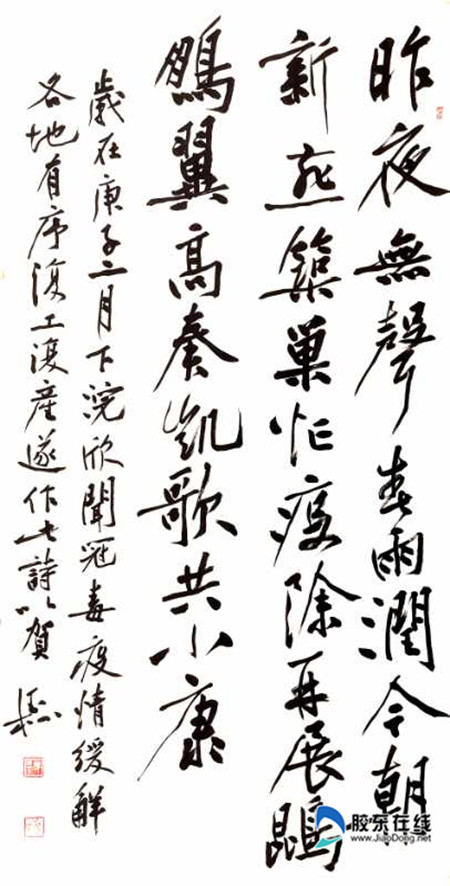 昨夜無聲春雨潤今朝
新燕築巢忙疫除再展鵾
鵬翼高奏凱歌共小康
歲在庚子二月下浣欣聞冠毒疫情緩解
各地有序復工復産遂作七詩以賀
胶东在线
www.JiaoDong.net